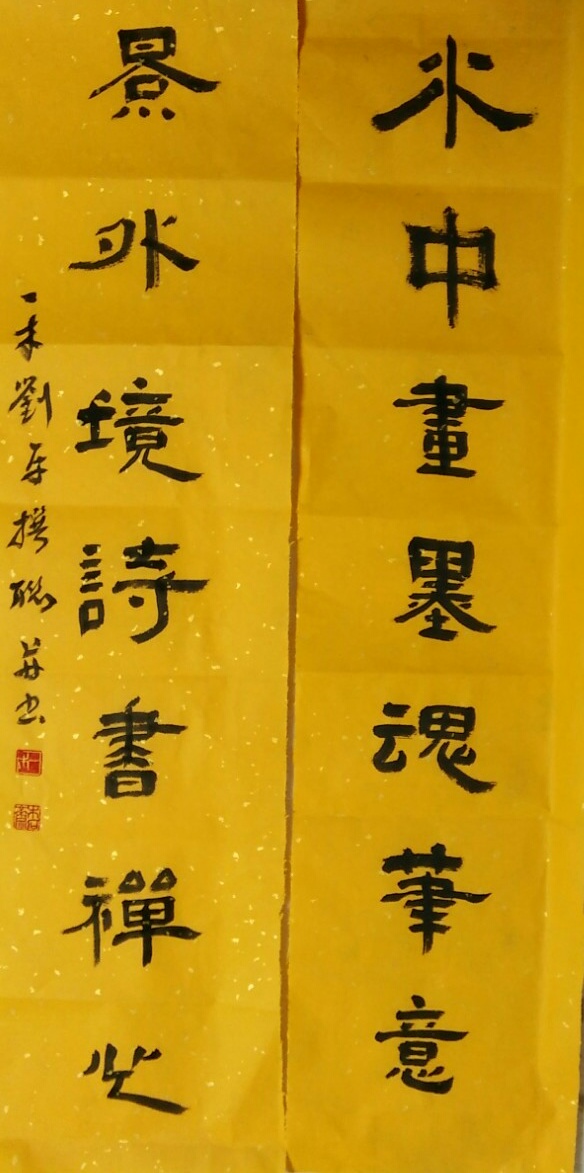 水中畫墨魂筆意
景外境詩書禪心
一劉平撰聯并书